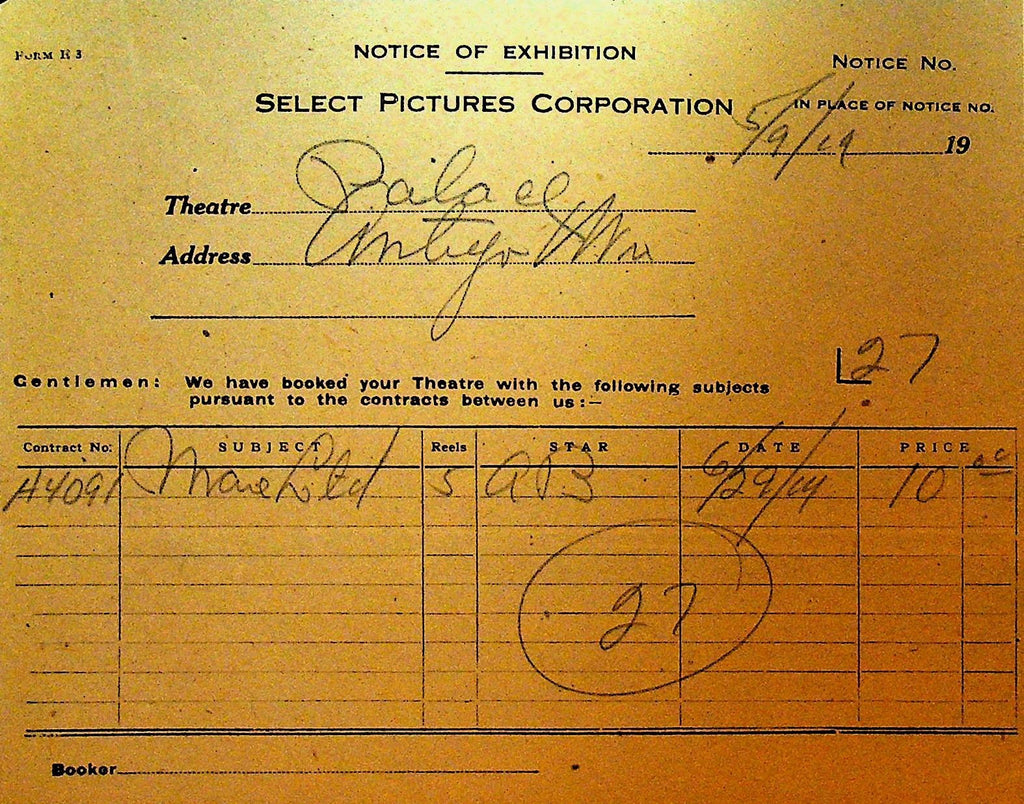 FORM E 3
NOTICE OF EXHIBITION
NOTICE NO.
SELECT PICTURES CORPORATION
IN PLACE OF NOTICE NO.
5/9/19 19
Theatre Palace
Address Antigo Wis
L27
Gentlemen: We have booked your Theatre with the following subjects
pursuant to the contracts between us:—
Contract No. SUBJECT Reels STAR DATE PRICE
A4091 5 6/29/19 10 00
27
Booker